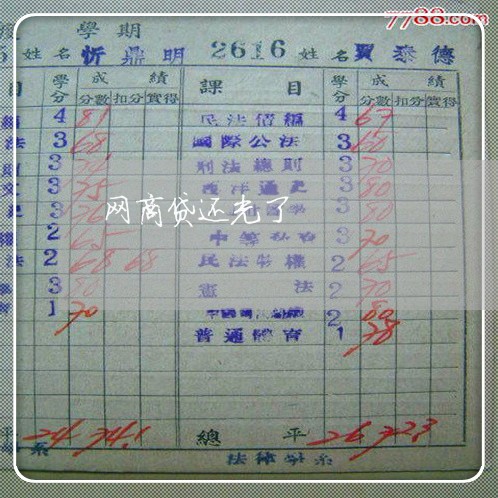 7788.com
學期
5 姓名 忻鼎明 2616 姓名 賈泰德
目 學分 成績 課目 學分 成績
分數 扣分 實得 分數 扣分 實得
4 81 民法債編 4 67
法 3 68 國際公法 3 60
3 刑法總則 3 70
3 75 西洋通史 3 80
3 3 80
网商贷还光了
2 65 3 70
法 2 68 68 民法物權 2 65
3 80 憲法 2 70
1 70 2 80
普通體育 1 78
平 24 74.1 總平 26 72.3
系 法律學系